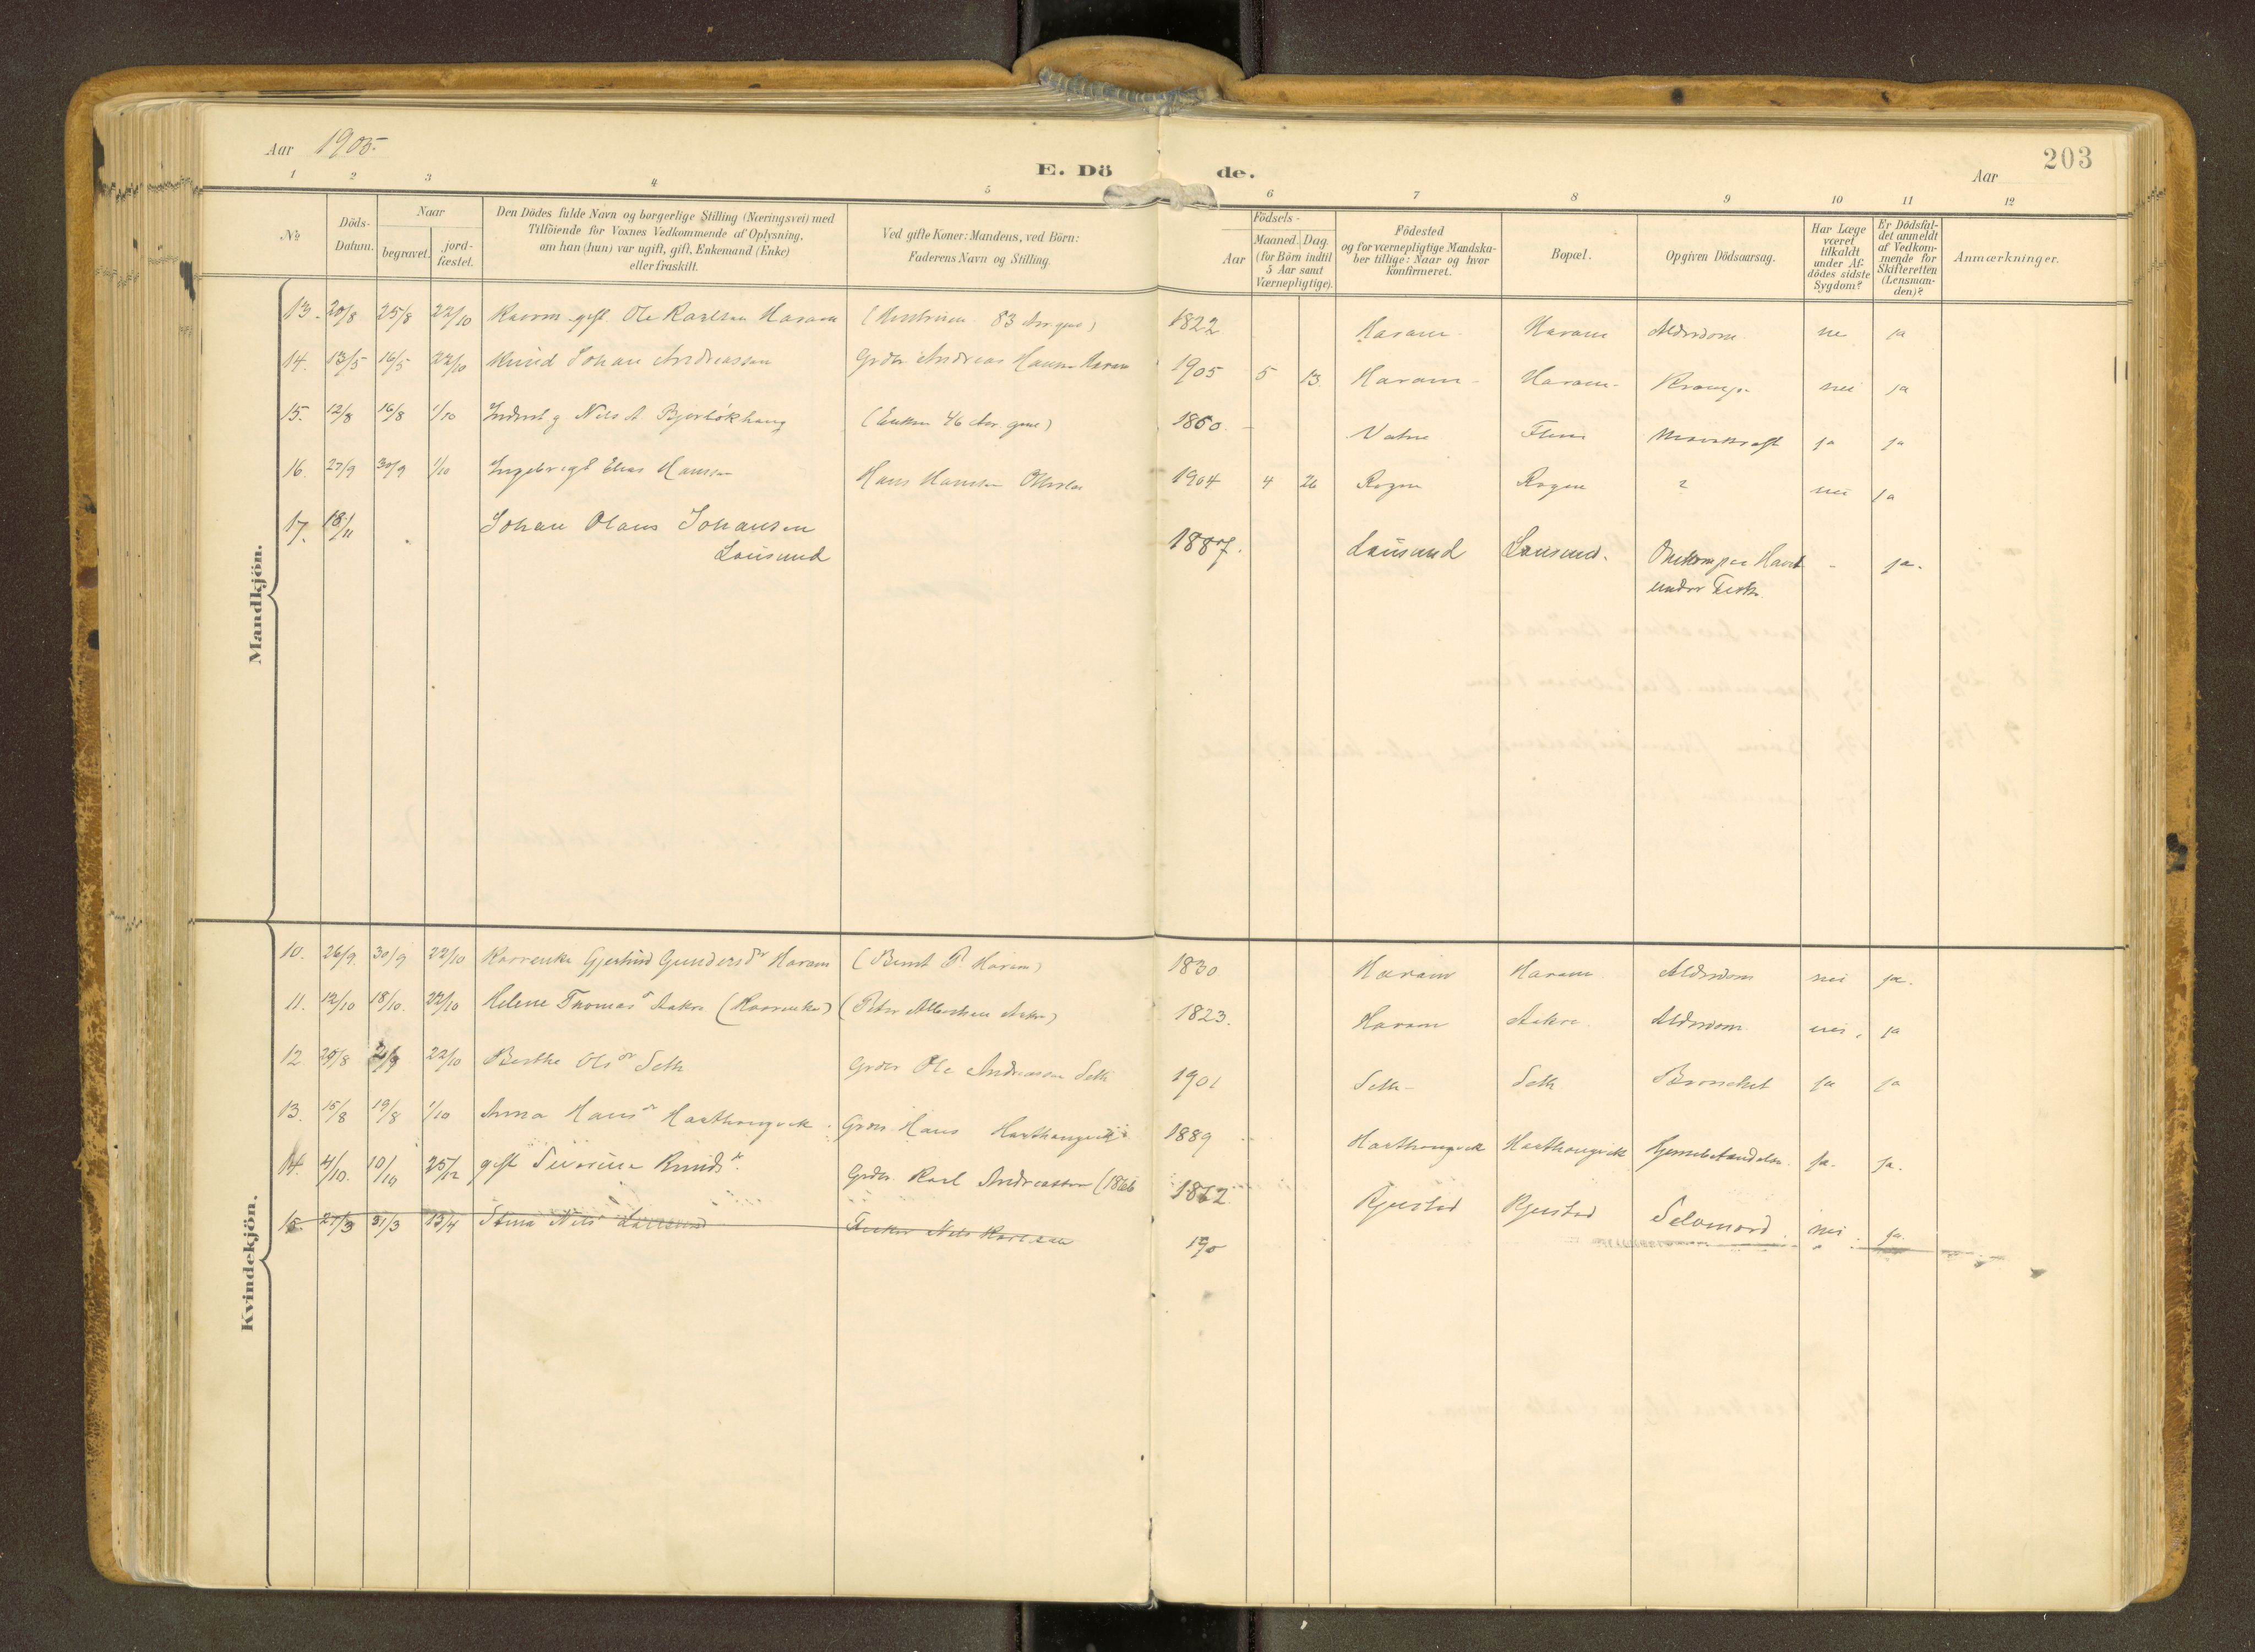 Aar 1905.
E. Dö de.
Aar
203
1 2 3 4 5 6 7 8 9 10 11 12
№
Döds-
Datum.
Naar
begravet.
jord-
fæstet.
Den Dödes fulde Navn og borgerlige Stilling (Næringsvei) med
Tilföiende for Voxnes Vedkommende af Oplysning,
om han (hun) var ugift, gift, Enkemand (Enke)
eller fraskilt.
Ved gifte Koner: Mandens, ved Börn:
Faderens Navn og Stilling.
Födsels-
Aar
Maaned. Dag.
(for Börn indtil
5 Aar samt
Værnepligtige).
Födested
og for værnepligtige Mandska-
ber tillige: Naar og hvor
konfirmeret.
Bopæl.
Opgiven Dödsaarsag.
Har Læge
været
tilkaldt
under Af-
dödes sidste
Sygdom?
Er Dödsfal-
det anmeldt
af Vedkom-
mende for
Skifteretten
(Lensman-
den)?
Anmærkninger.
Mandkjön.
13. 20/8 25/8 22/10 gift Ole Karlsen Haram ( 83 Aar gml) 1822 Haram Haram Alderdom ja
14. 13/5 16/5 22/10 Knud Johan Andreassen Grdbr Andreas Hansen Haram 1905 5 13 Haram Haram Krampe nei ja
15. 12/8 16/8 1/10 Inderst g Nils A Bjerlökhaug (Enken 46 Aar gml) 1860 Vatne Flem ja ja
16. 27/9 30/9 1/10 Ingebrigt Elias Hansen Hans Hansen 1904 4 26 Rogne Rogne ? nei ja
17. 18/11 Johan Olaus Johansen
Lausund
1887. Lausund Lausund. Omkom paa Havet
under Fiske
- ja.
Kvindekjön.
10. 26/9. 30/9 22/10 Kaarenke Gjertrud Gundersdr Haram (Bernt P. Haram) 1830 Haram Haram Alderdom nei ja.
11. 12/10 18/10. 22/10 Helene Thomasdr Aakre (Kaarenke) (Peter Aakre) 1823. Haram Aakre Alderdom nei. ja
12 29/8 2/9 22/10 Berthe Olsdr Seth Grdbr Ole Andreassen Seth 1901 Seth Seth Bronchit ja ja
13. 15/8 19/8 1/10 Anna Hansdr Hasthaugvik. Grdbr Hans Hasthaugvik 1889 Hasthaugvik Hasthaugvik Hjernebetændelse. ja. ja.
14. 4/10. 10/10 25/12 gift Severine Knudsdr. Grdbr. Karl Andreassen (1866 1872 Kjerstad Kjerstad Selvmord. nei. ja.
15. 27/3 31/3 13/4 Stina Nils Lausund Fisker Nils Karlsen 190